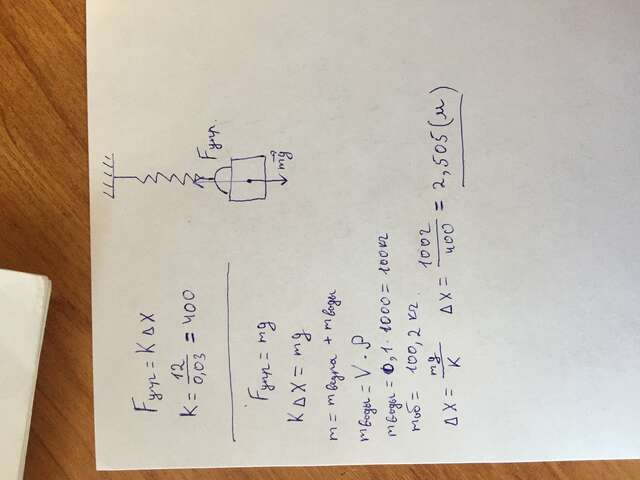 Fупр.
mg
Fупр = K Δ X
K = 12/0,03 = 400
Fупр = mg
K Δ X = mg
m = mведра + mводы
mводы = V · ρ
mводы = 0,1 · 1000 = 100 кг
mоб = 100,2 кг.
ΔX = mg/K ΔX = 1002/400 = 2,505 (м)